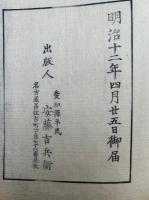 明治十二年四月廿五日御届
愛知縣平民
出版人 安藤吉兵衛
名古屋